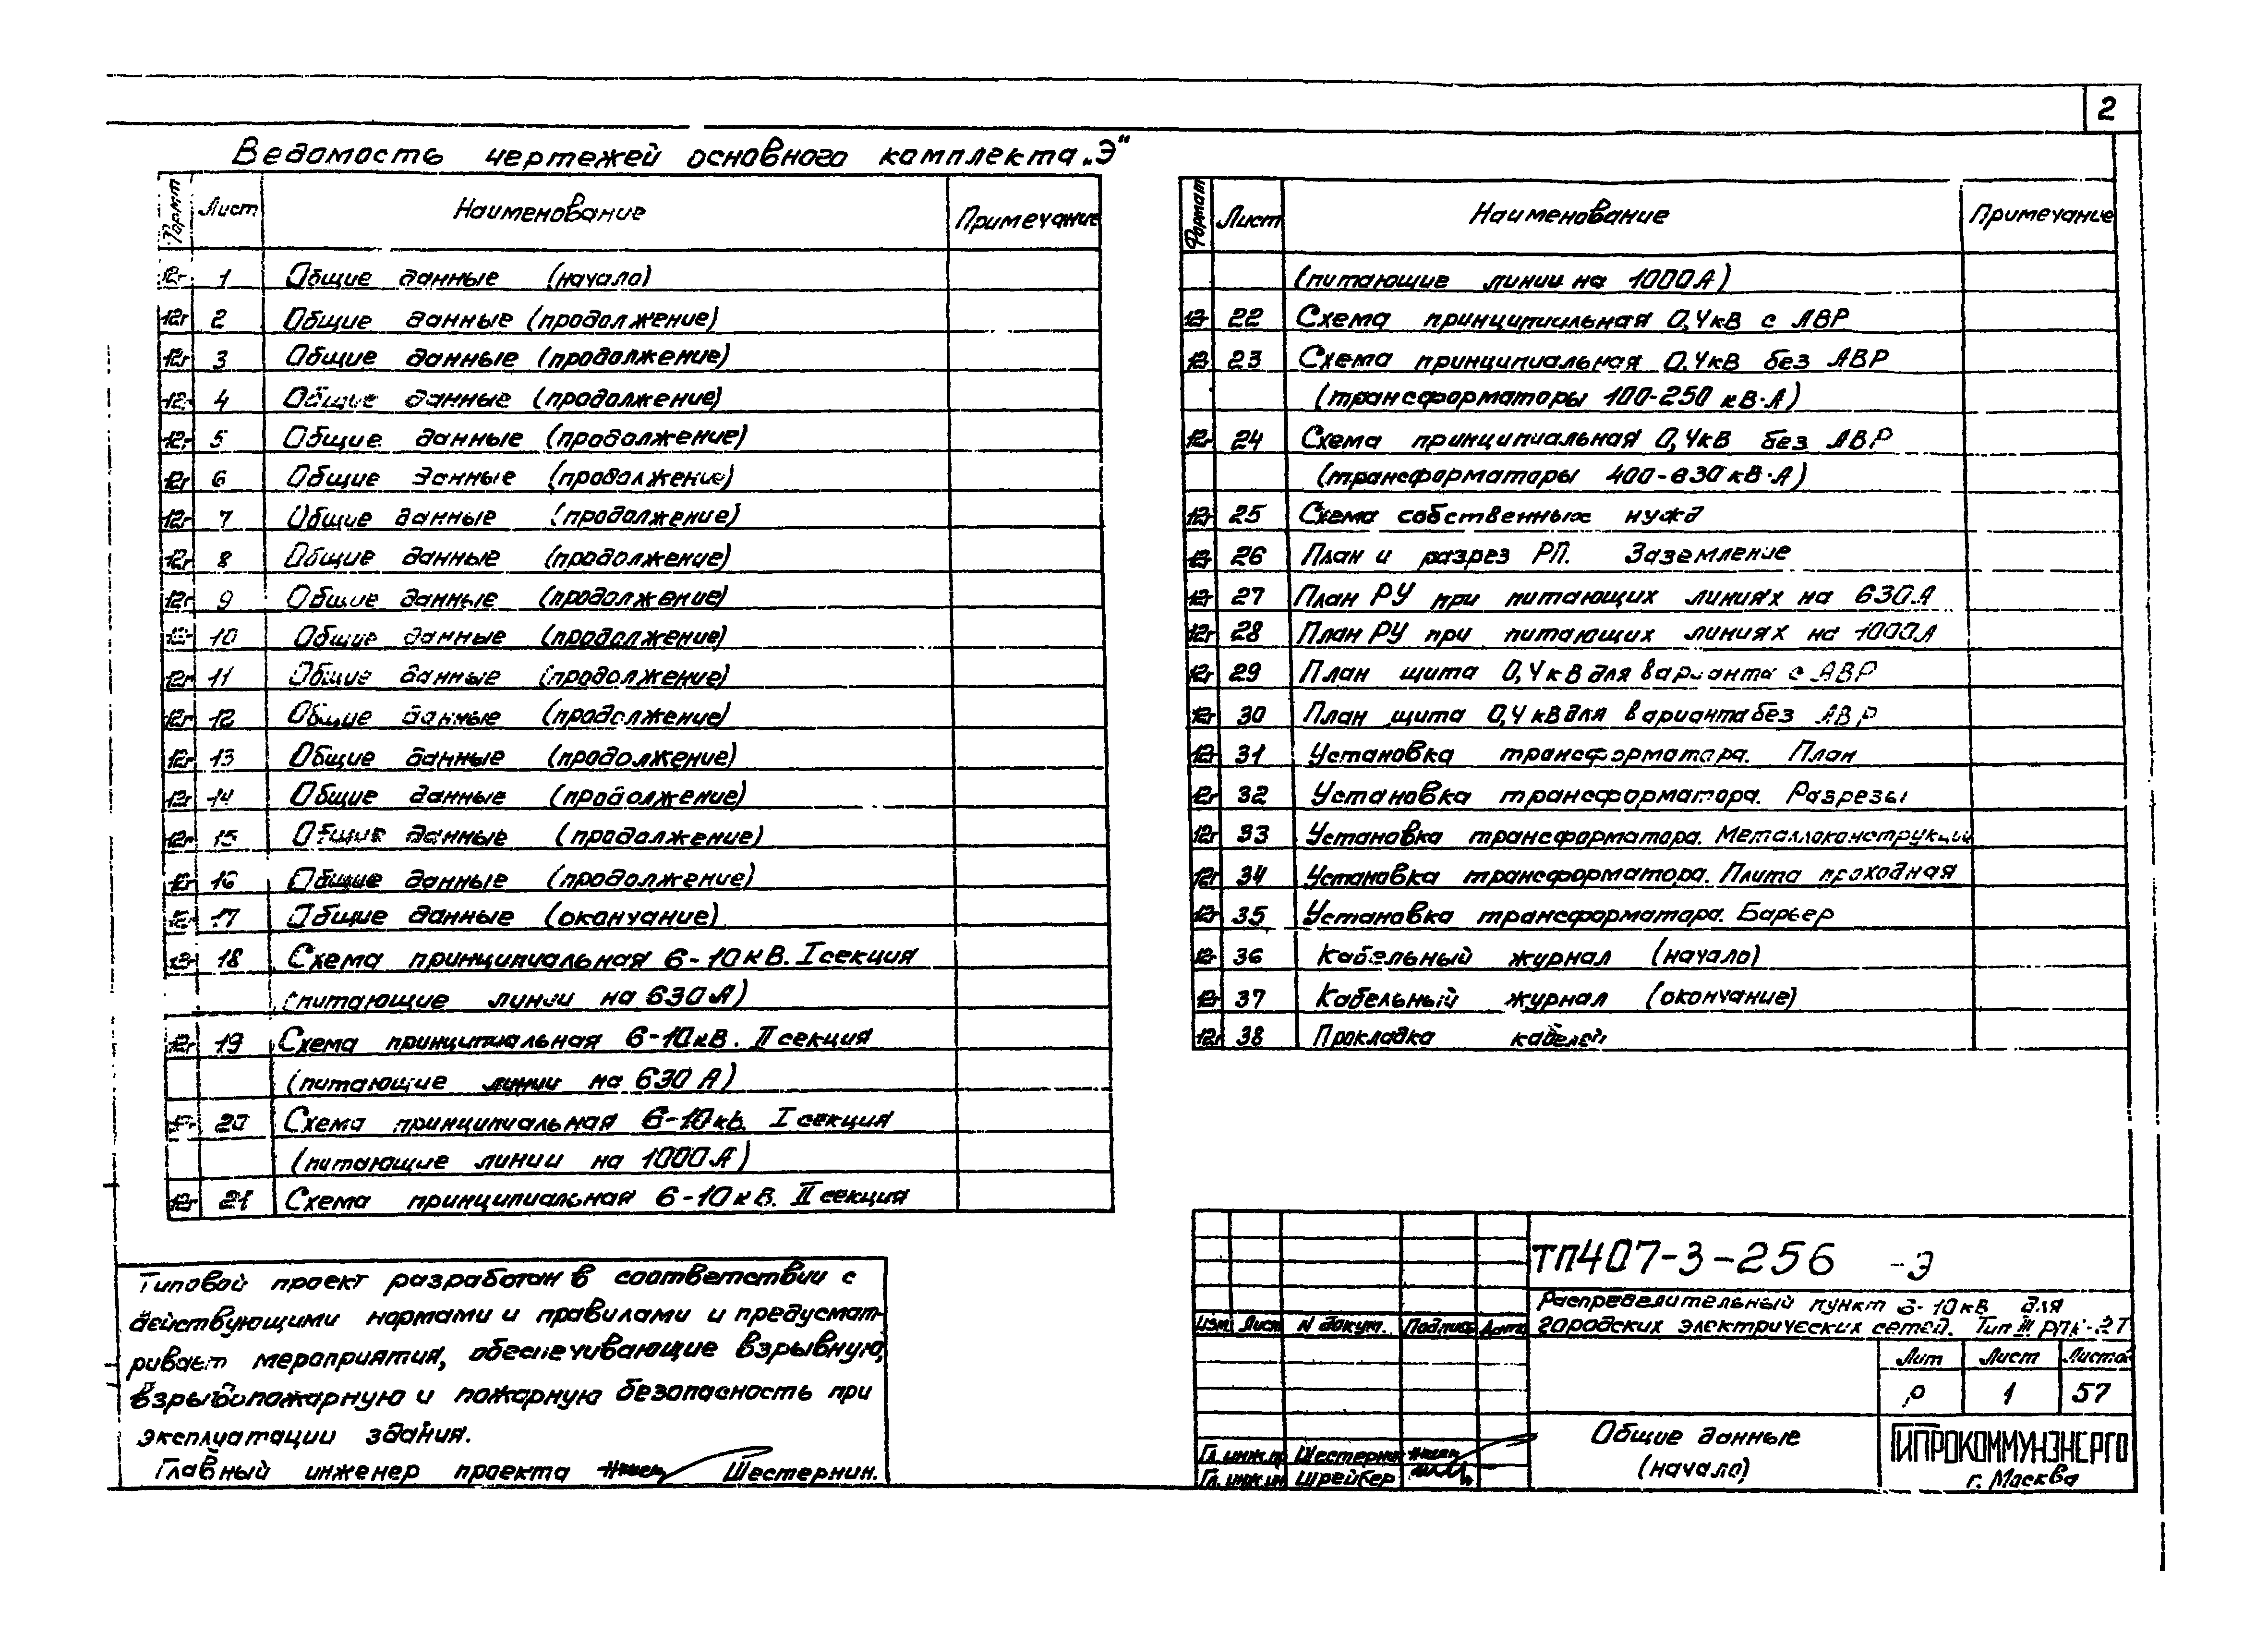 2
Ведомость чертежей основного комплекта „Э"
Формат Лист Наименование Примечание
12г 1 Общие данные (начало)
12г 2 Общие данные (продолжение)
12г 3 Общие данные (продолжение)
12г 4 Общие данные (продолжение)
12г 5 Общие данные (продолжение)
12г 6 Общие данные (продолжение)
12г 7 Общие данные (продолжение)
12г 8 Общие данные (продолжение)
12г 9 Общие данные (продолжение)
12г 10 Общие данные (продолжение)
12г 11 Общие данные (продолжение)
12г 12 Общие данные (продолжение)
12г 13 Общие данные (продолжение)
12г 14 Общие данные (продолжение)
12г 15 Общие данные (продолжение)
12г 16 Общие данные (продолжение)
12г 17 Общие данные (окончание)
12г 18 Схема принципиальная 6-10кВ. I секция
(питающие линии на 630А)
12г 19 Схема принципиальная 6-10кВ. II секция
(питающие линии на 630А)
12г 20 Схема принципиальная 6-10кВ. I секция
(питающие линии на 1000А)
12г 21 Схема принципиальная 6-10кВ. II секция
Формат Лист Наименование Примечание
(питающие линии на 1000А)
12г 22 Схема принципиальная 0,4кВ с АВР
12г 23 Схема принципиальная 0.4кВ без АВР
(трансформаторы 100-250 кВ·А)
12г 24 Схема принципиальная 0,4кВ без АВР
(трансформаторы 400-630кВ·А)
12г 25 Схема собственных нужд
12г 26 План и разрез РП. Заземление
12г 27 План РУ при питающих линиях на 630А
12г 28 План РУ при питающих линиях на 1000А
12г 29 План щита 0,4кВ для варианта с АВР
12г 30 План щита 0,4кВ для варианта без АВР
12г 31 Установка трансформатора. План
12г 32 Установка трансформатора. Разрезы
12г 33 Установка трансформатора. Металлоконструкции
12г 34 Установка трансформатора. Плита проходная
12г 35 Установка трансформатора. Барьер
12г 36 Кабельный журнал (начало)
12г 37 Кабельный журнал (окончание)
12г 38 Прокладка кабелей
Типовой проект разработан в соответствии с
действующими нормами и правилами и предусмат-
ривает мероприятия, обеспечивающие взрывную,
взрывопожарную и пожарную безопасность при
эксплуатации здания.
Главный инженер проекта Шестернин.
ТП407-3-256 -Э
Распределительный пункт 6-10кВ для
городских электрических сетей. Тип III РПК-2Т
Изм. Лист N докум. Подпись Дата
Лит Лист Листов
Р 1 57
Общие данные
(начало)
ГИПРОКОММУНЭНЕРГО
г. Москва
Гл. инж.пр Шестернин
Гл. инж.ин Шрейбер